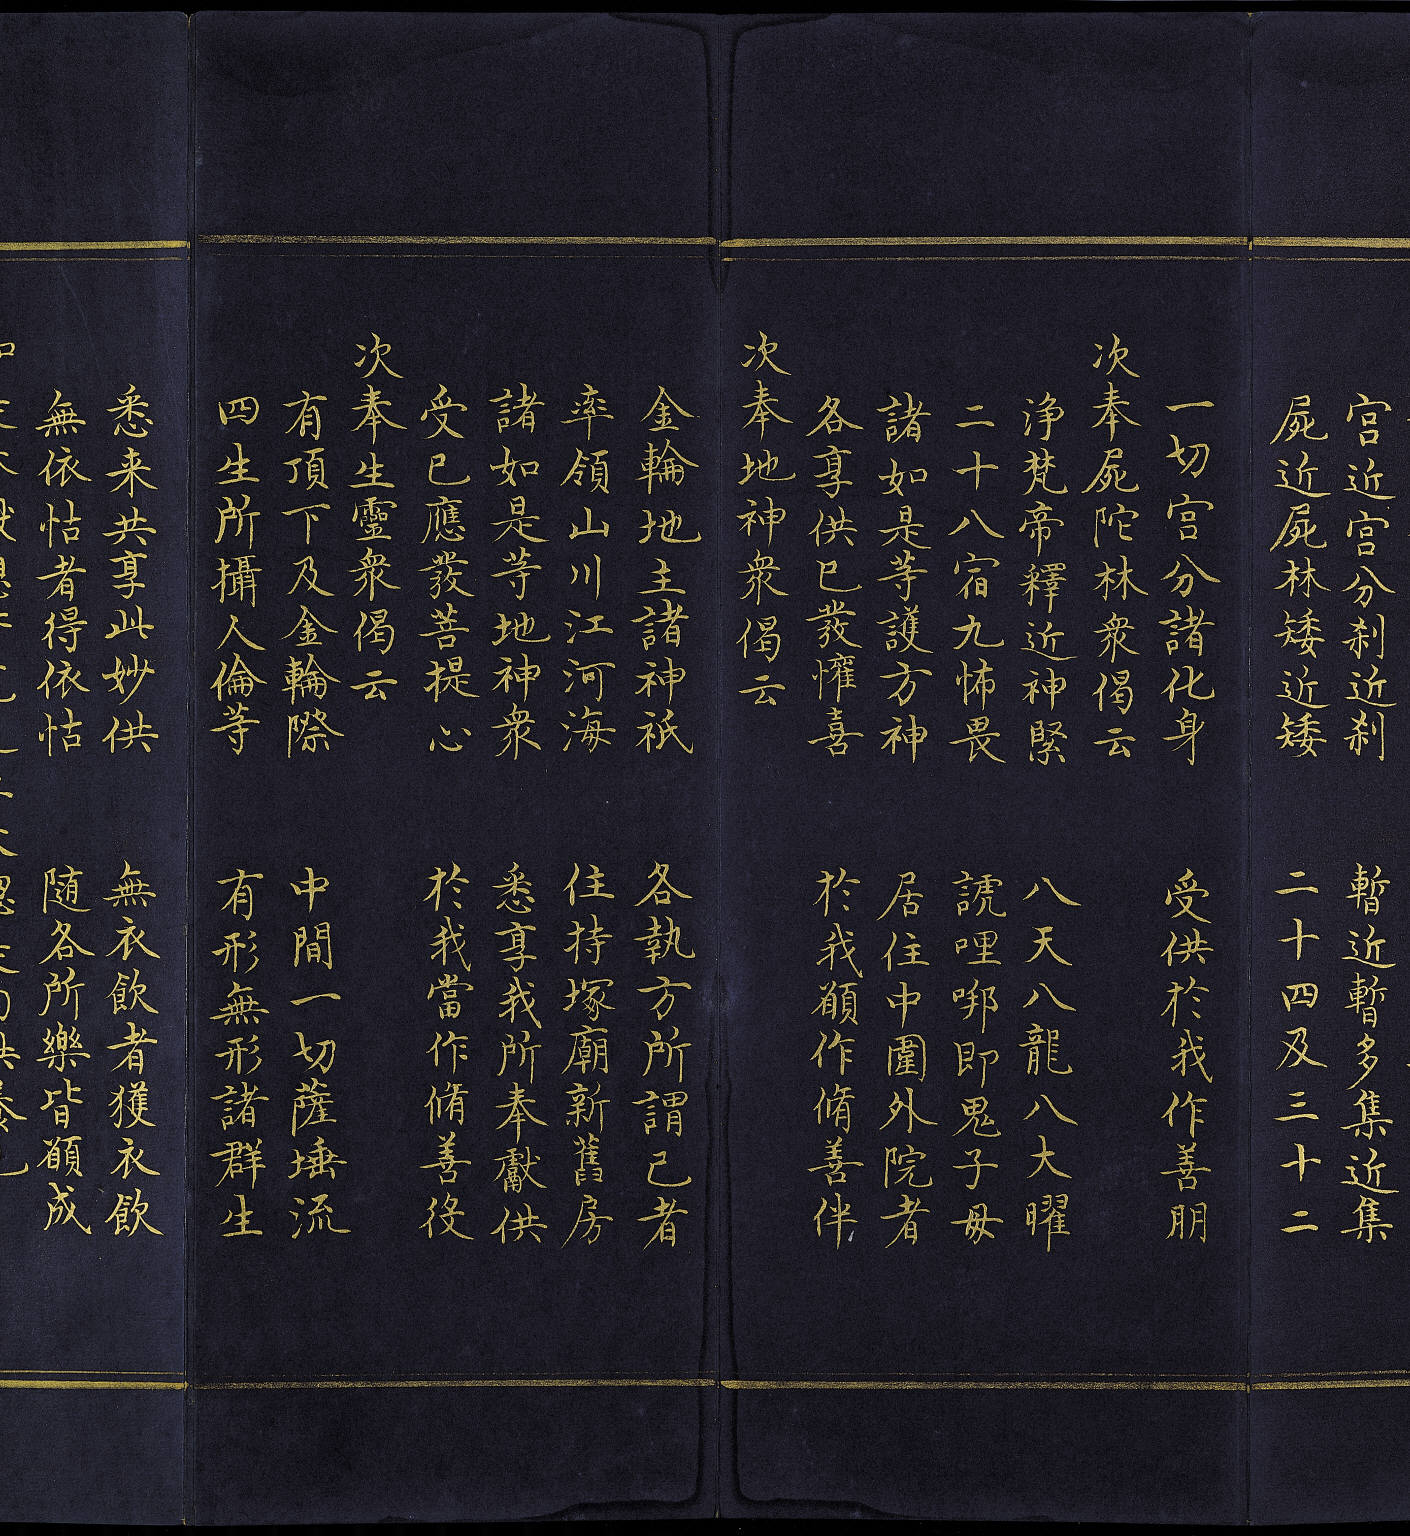 宫近宫分刹近刹　暫近暫多集近集
屍近屍林矮近矮　二十四及三十二
一切宫分諸化身　受供於我作善朋
次奉屍陀林衆偈云
浄梵帝釋近神緊　八天八龍八大曜
二十八宿九怖畏　諕哩啷即鬼子毋
諸如是䓁護方神　居住中圍外院者
各享供已發懽喜　於我願作脩善伴
次奉地神衆偈云
金輪地主諸神祇　各執方所謂己者
率領山川江河海　住持塚廟新舊房
諸如是䓁地神衆　悉享我所奉獻供
受已應發菩提心　於我當作脩善役
次奉生靈衆偈云
有頂下及金輪際　中間一切薩埵流
四生所攝人倫䓁　有形無形諸群生
悉来共享此妙供　無衣飲者獲衣飲
無依怙者得依怙　随各所樂皆願成